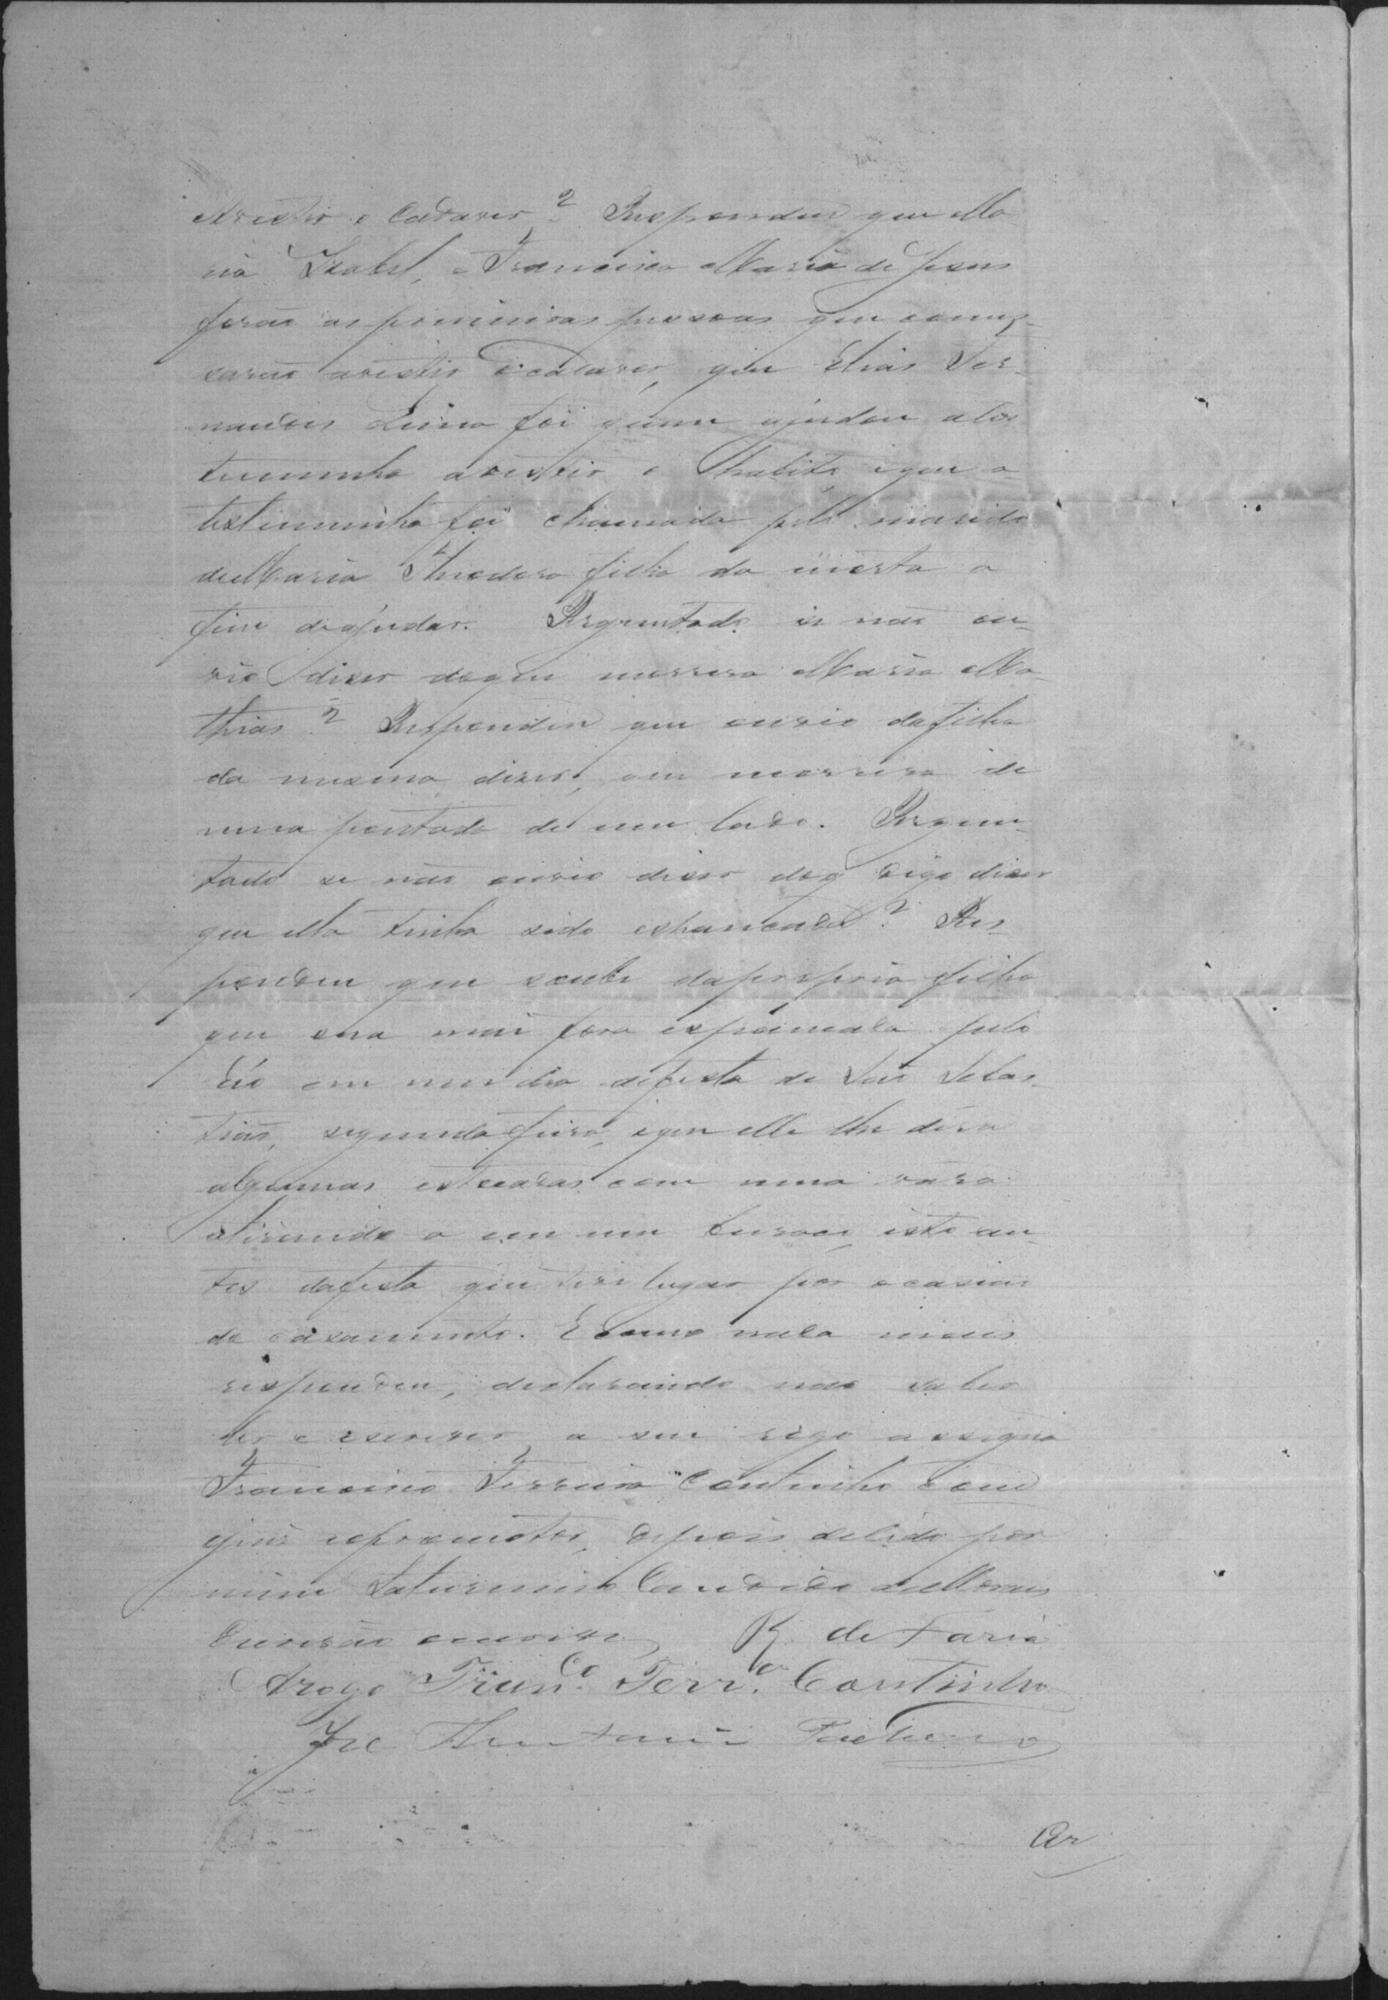 avestir o Cadaver? Respondeu que Ma-
ria Izabel, e Francisca Maria de Jesus
forão as primeiras pessoas que come-
sarão avestir o cadaver, que Elias Fer-
nandes Lima foi quem ajudou a tes
temunha avestir o habito e que a
testemunha foi chamada pelo marido
de Maria Theodora filha da morta a
fim de ajudar. Perguntado se não ou-
vio dizer de que morrera Maria Ma-
thias? Respondeu que ouvio da filha
da mesma dizer, que morrera de
uma pontada de um lado. Pregun-
tado se não ouvio dizer deq digo dizer
que ella tinha sido espancada? Res-
pondeu que soube da propria filha
que sua mai fora espancada pelo
Réo em um dia de festa de São Sebas-
tião, segunda feira, e que elle lhe déra
algumas estocadas com uma vara
atirando a em um buraco, isto an-
tes da festa que teve lugar por ocasião
do casamento. E como nada mais
respondeu, declarando não saber
ler e escrever, a seu rogo assigna
Francisco Ferreira Coutinho com
o juis e promotor, depois de lido por
mim Saturnino Candido de Moraes
Escrivão escrevi. R. de Faria
Arogo Fran.co Ferr.a Coutinho
José
Cer